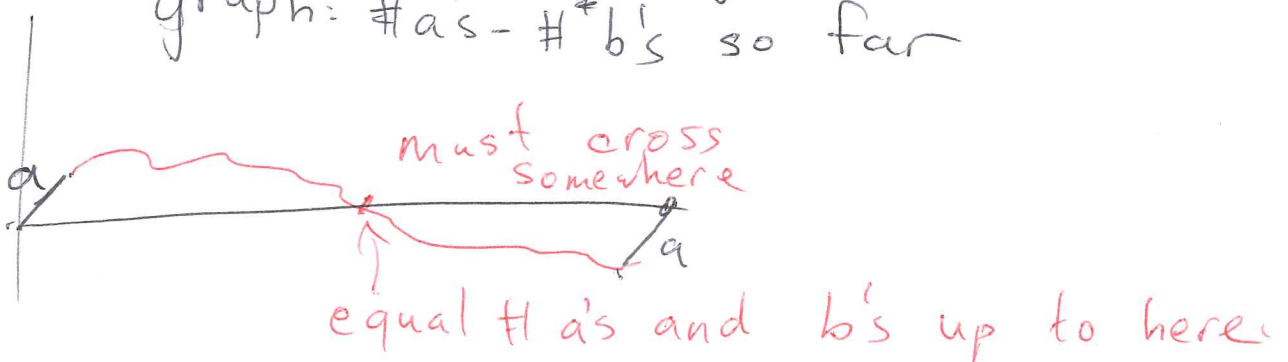 graph: #as - # b's so far
must cross
somewhere
a
a
equal # a's and b's up to here.